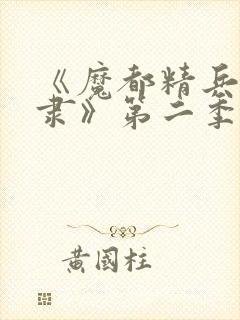 《魔都精兵
隶》第二季
黄國柱